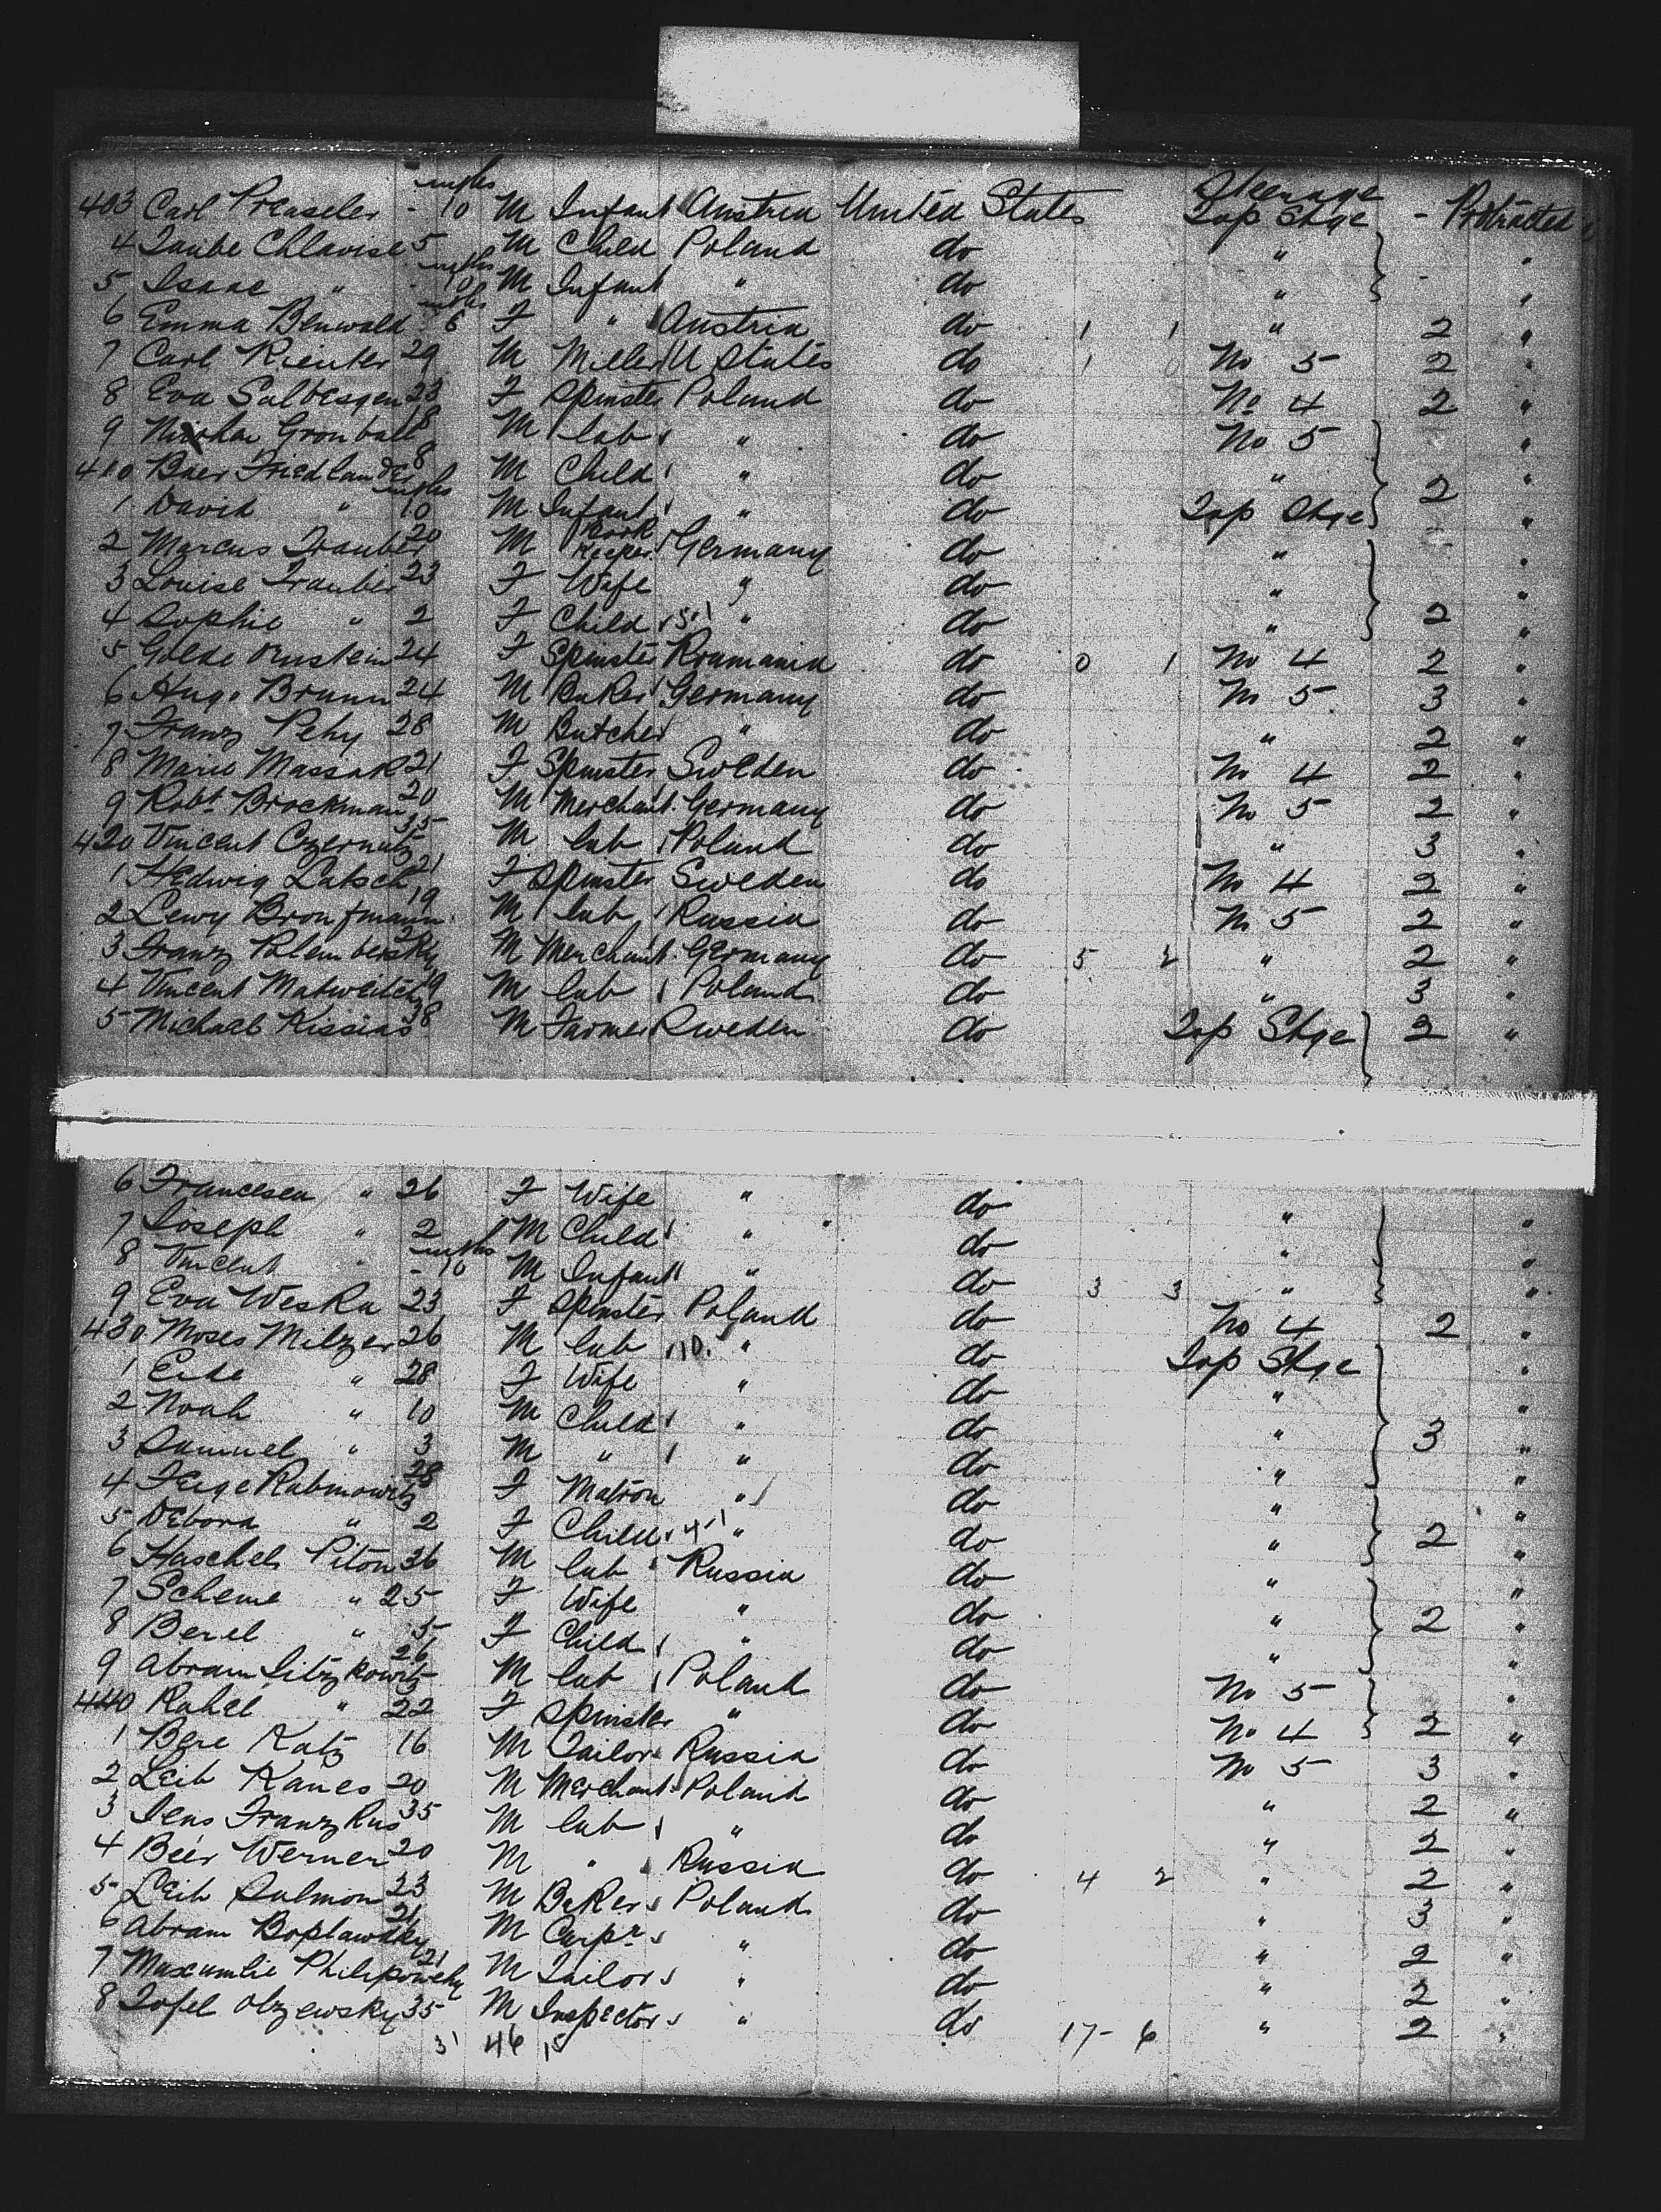 mths Steerage
403 Carl Preaseler - 10 M Infant Austria United States Top Stge - Protracted
4 Taube Chlavise 5 M Child Poland do "  "
mths
5 Isaac " - 10 M Infant " do " - "
mths
6 Emma Benwald 6 F " Austria do 1 1 " 2 "
7 Carl Rienter 29 M Miller U States do 1 0 No 5 2 "
8 Eva Salbesgen 23 F Spinster Poland do No 4 2 "
9 Gronball 18 M lab " do No 5 "
410 Baer Friedlander 8 M Child " do " 2 "
mths
1 David " 10 M Infant " do Top Stge "
2 Marcus Trauber 20 M Book Keeper Germany do " "
3 Louise Trauber 23 F Wife " do " "
4 Sophie " 2 F Child 5-1 " do " 2 "
5 Golde Ornstein 24 F Spinster Roumania do 0 1 No 4 2 "
6 Hugo Brunn 24 M Baker Germany do No 5 3 "
7 Franz Pehy 28 M Butcher " do " 2 "
8 Marie Massak 21 F Spinster Sweden do No 4 2 "
9 Robt Brockman 20 M Merchant Germany do No 5 2 "
420 Vincent Czernutz 35 M lab Poland do " 3 "
1 Hedwig Latsch 21 F Spinster Sweden do No 4 2 "
2 Lewy Bronfmann 19 M lab Russia do No 5 2 "
3 Franz M Merchant Germany do 5 2 " 2 "
4 Vincent Matweitch 19 M lab Poland do " 3 "
5 Michael Kissias 38 M Farmer Sweden do Top Stge 2 "
6 Francesca " 26 F Wife " do " "
7 Joseph " 2 M Child " do " "
mths
8 Vincent " - 10 M Infant " do 3 3 " "
9 Eva Weska 23 F Spinster Poland do No 4 2 "
430 Moses Milzer 26 M lab 10. " do Top Stge "
1 " 28 F Wife " do " "
2 Noah " 10 M Child " do " 3 "
3 Samuel " 3 M " " do " "
4 Feige Rabinowitz 28 F Matron " do " "
5 Debora " 2 F Child 4-1 " do " 2 "
6 Haschel Piton 36 M lab Russia do " "
7 Scheme " 25 F Wife " do " 2 "
8 Berel " 5 F Child " do " "
9 Abram Sitzkowitz 26 M lab Poland do No 5
440 Rahel " 22 F Spinster " do No 4 2 "
1 Bere Katz 16 M Tailor Russia do No 5 3 "
2 Leib Kanes 20 M Merchant Poland do " 2 "
3 Jens Franzkus 35 M lab " do " 2 "
4 Beer Werner 20 M " Russia do 4 2 " 2 "
5 Leib Salmon 23 M Baker Poland do " 3 "
6 Abram Boplawsky 21 M Carpr " do " 2 "
7 Philipowehy 21 M Tailor " do " 2 "
8 Tofel Olzewsky 35 M Inspector " do 17-6 " 2 "
31 46 15